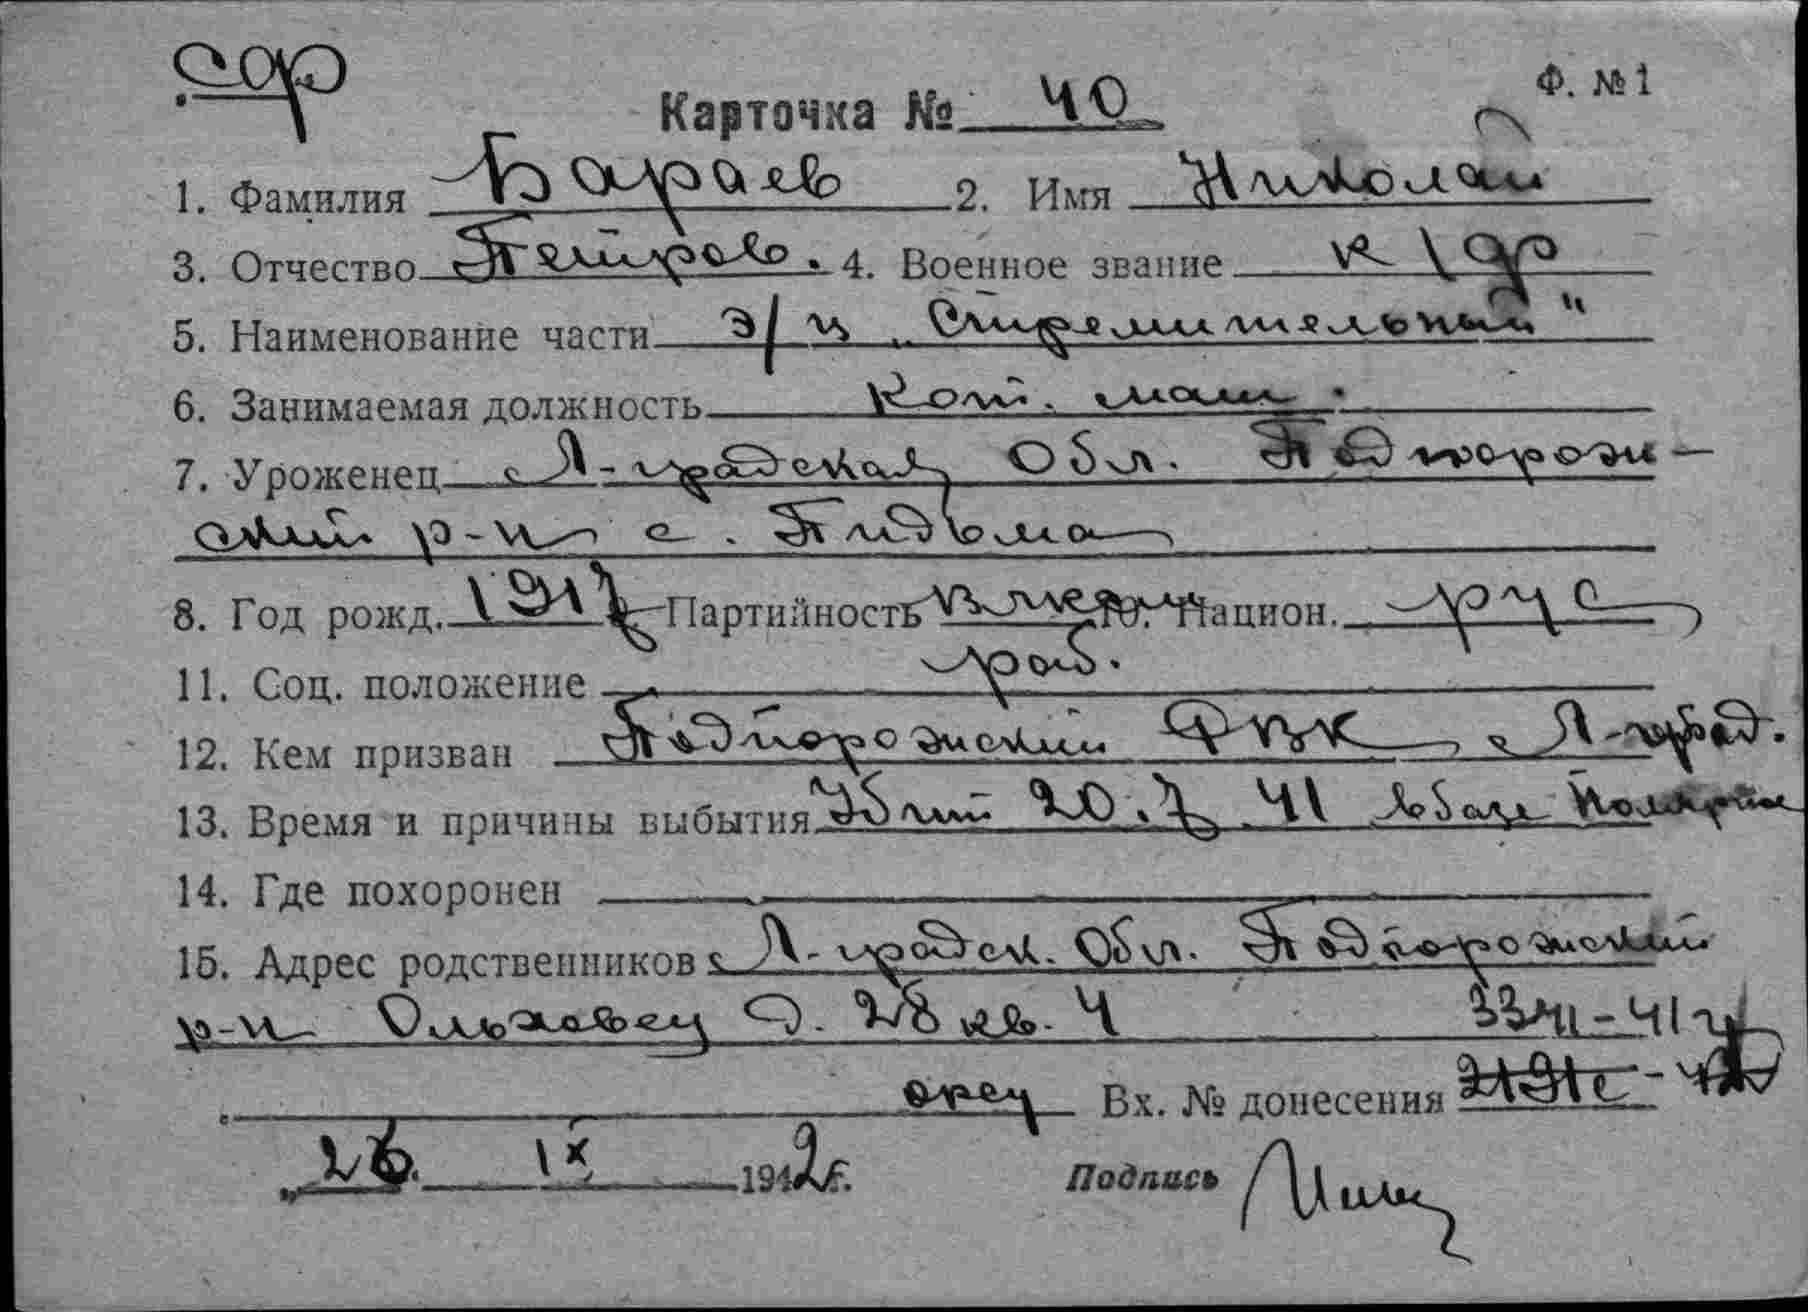 Ф. №1
Карточка № 40
1. Фамилия Бараев 2. Имя Николай
3. Отчество Петров. 4. Военное звание к/ф
5. Наименование части э/м „Стремительный"
6. Занимаемая должность Кот. маш.
7. Уроженец Л-градская Обл. Подпорож-
ский р-н с. Пидьма
8. Год рожд. 1917 Партийность влксм 10. Национ. рус
11. Соц. положение раб.
12. Кем призван Подпорожский РВК Л-град.
13. Время и причины выбытия Убит 20.7.41 в базе Полярное
14. Где похоронен
15. Адрес родственников Л-градск. Обл. Подпорожский
р-н Ольховец д. 28 кв. 4
отец Вх. № донесения
„26. IX 1942 г.
Подпись